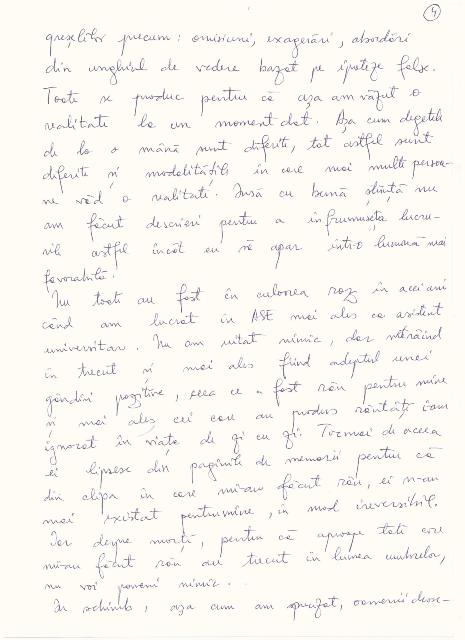 4
greșelilor precum: omisiuni, exagerări, abordări
din unghiul de vedere bazat pe ipoteze false.
Toate se produc pentru că așa am văzut o
realitate la un moment dat. Așa cum degetele
de la o mână sunt diferite, tot astfel sunt
diferite și modalitățile în care mai multe persoa-
ne văd o realitate. Însă cu bună știință nu
am făcut descrieri pentru a înfrumuseța lucru-
rile astfel încât eu să apar într-o lumină mai
favorabilă.
Nu toate au fost în culoarea roz în acei ani
când am lucrat în ASE mai ales ca asistent
universitar. Nu am uitat nimic, dar intrând
în trecut și mai ales fiind adeptul unei
gândiri pozitive, ceea ce a fost rău pentru mine
și mai ales cei care au produs răutăți i-am
ignorat în viața de zi cu zi. Tocmai de aceea
ei lipsesc din paginile de memorii pentru că
din clipa în care mi-au făcut rău, ei n-au
mai existat pentru mine, în mod ireversibil.
Iar despre morți, pentru că aproape toți care
mi-au făcut rău au trecut în lumea umbrelor,
nu voi pomeni nimic...
În schimb, așa cum am precizat, oamenii deose-